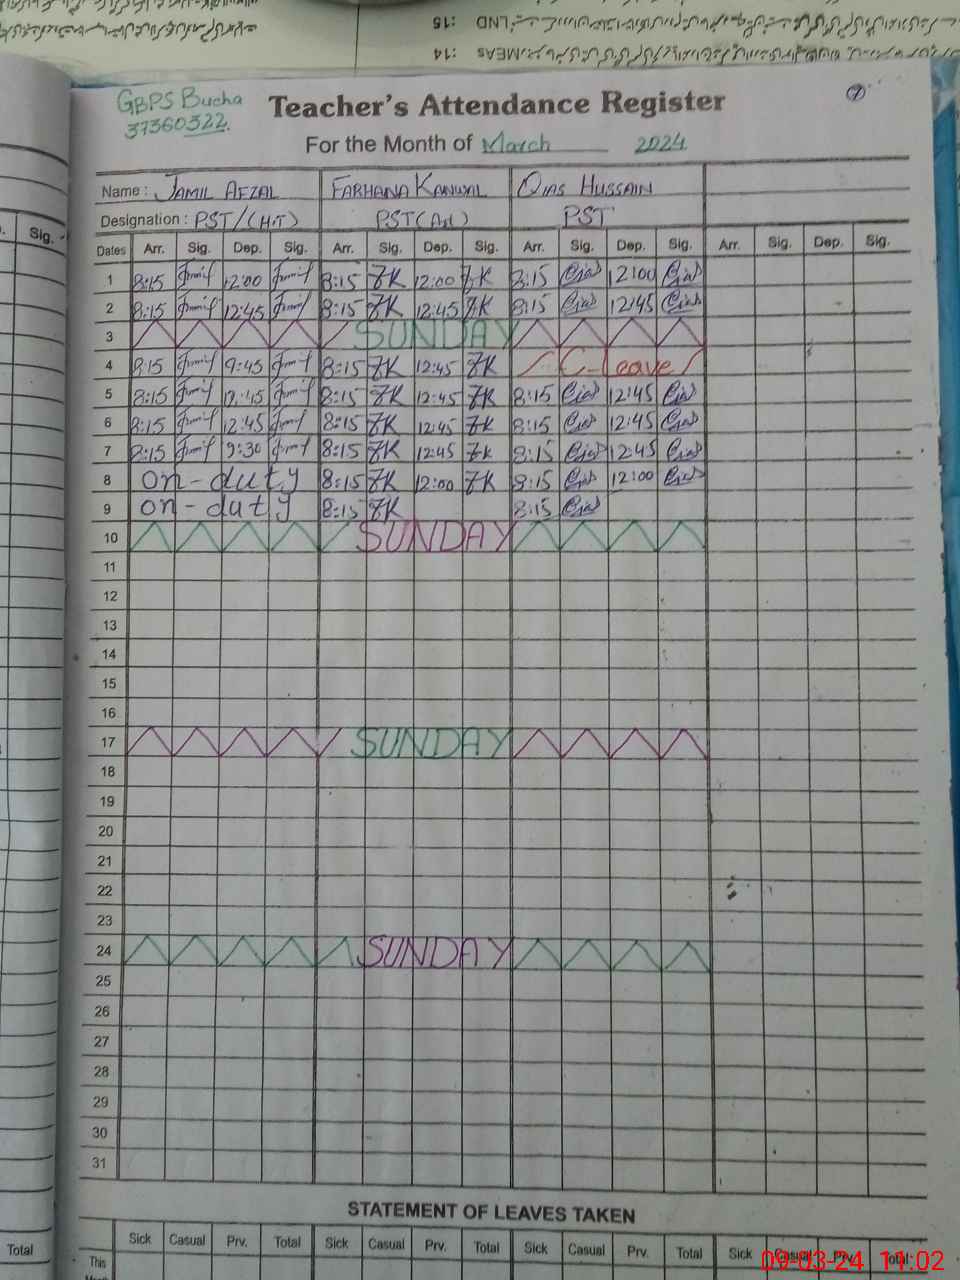 15: LND
14: MEAs
GBPS Bucha
37360322.
Teacher's Attendance Register
For the Month of March 2024
Name : JAMIL AFZAL FARHANA KANWAL QIAS HUSSAIN
Designation : PST/(H.T) PST(Ad) PST
Dates Arr. Sig. Dep. Sig. Arr. Sig. Dep. Sig. Arr. Sig. Dep. Sig. Arr. Sig. Dep. Sig.
Sig.
1 8:15 Jamil 12:00 Jamil 8:15 FK 12:00 FK 8:15 Qias 12:00 Qias
2 8:15 Jamil 12:45 Jamil 8:15 FK 12:45 FK 8:15 Qias 12:45 Qias
3 SUNDAY
4 8:15 Jamil 9:45 Jamil 8:15 FK 12:45 FK C-Leave
5 8:15 Jamil 12:45 Jamil 8:15 FK 12:45 FK 8:15 Qias 12:45 Qias
6 8:15 Jamil 12:45 Jamil 8:15 FK 12:45 FK 8:15 Qias 12:45 Qias
7 8:15 Jamil 9:30 Jamil 8:15 FK 12:45 FK 8:15 Qias 12:45 Qias
8 on-duty 8:15 FK 12:00 FK 8:15 Qias 12:00 Qias
9 on-duty 8:15 FK 8:15 Qias
10 SUNDAY
11
12
13
14
15
16
17 SUNDAY
18
19
20
21
22
23
24 SUNDAY
25
26
27
28
29
30
31
STATEMENT OF LEAVES TAKEN
Sick Casual Prv. Total Sick Casual Prv. Total Sick Casual Prv. Total Sick Casual Prv. Total
Total
This
09-03-24 11:02